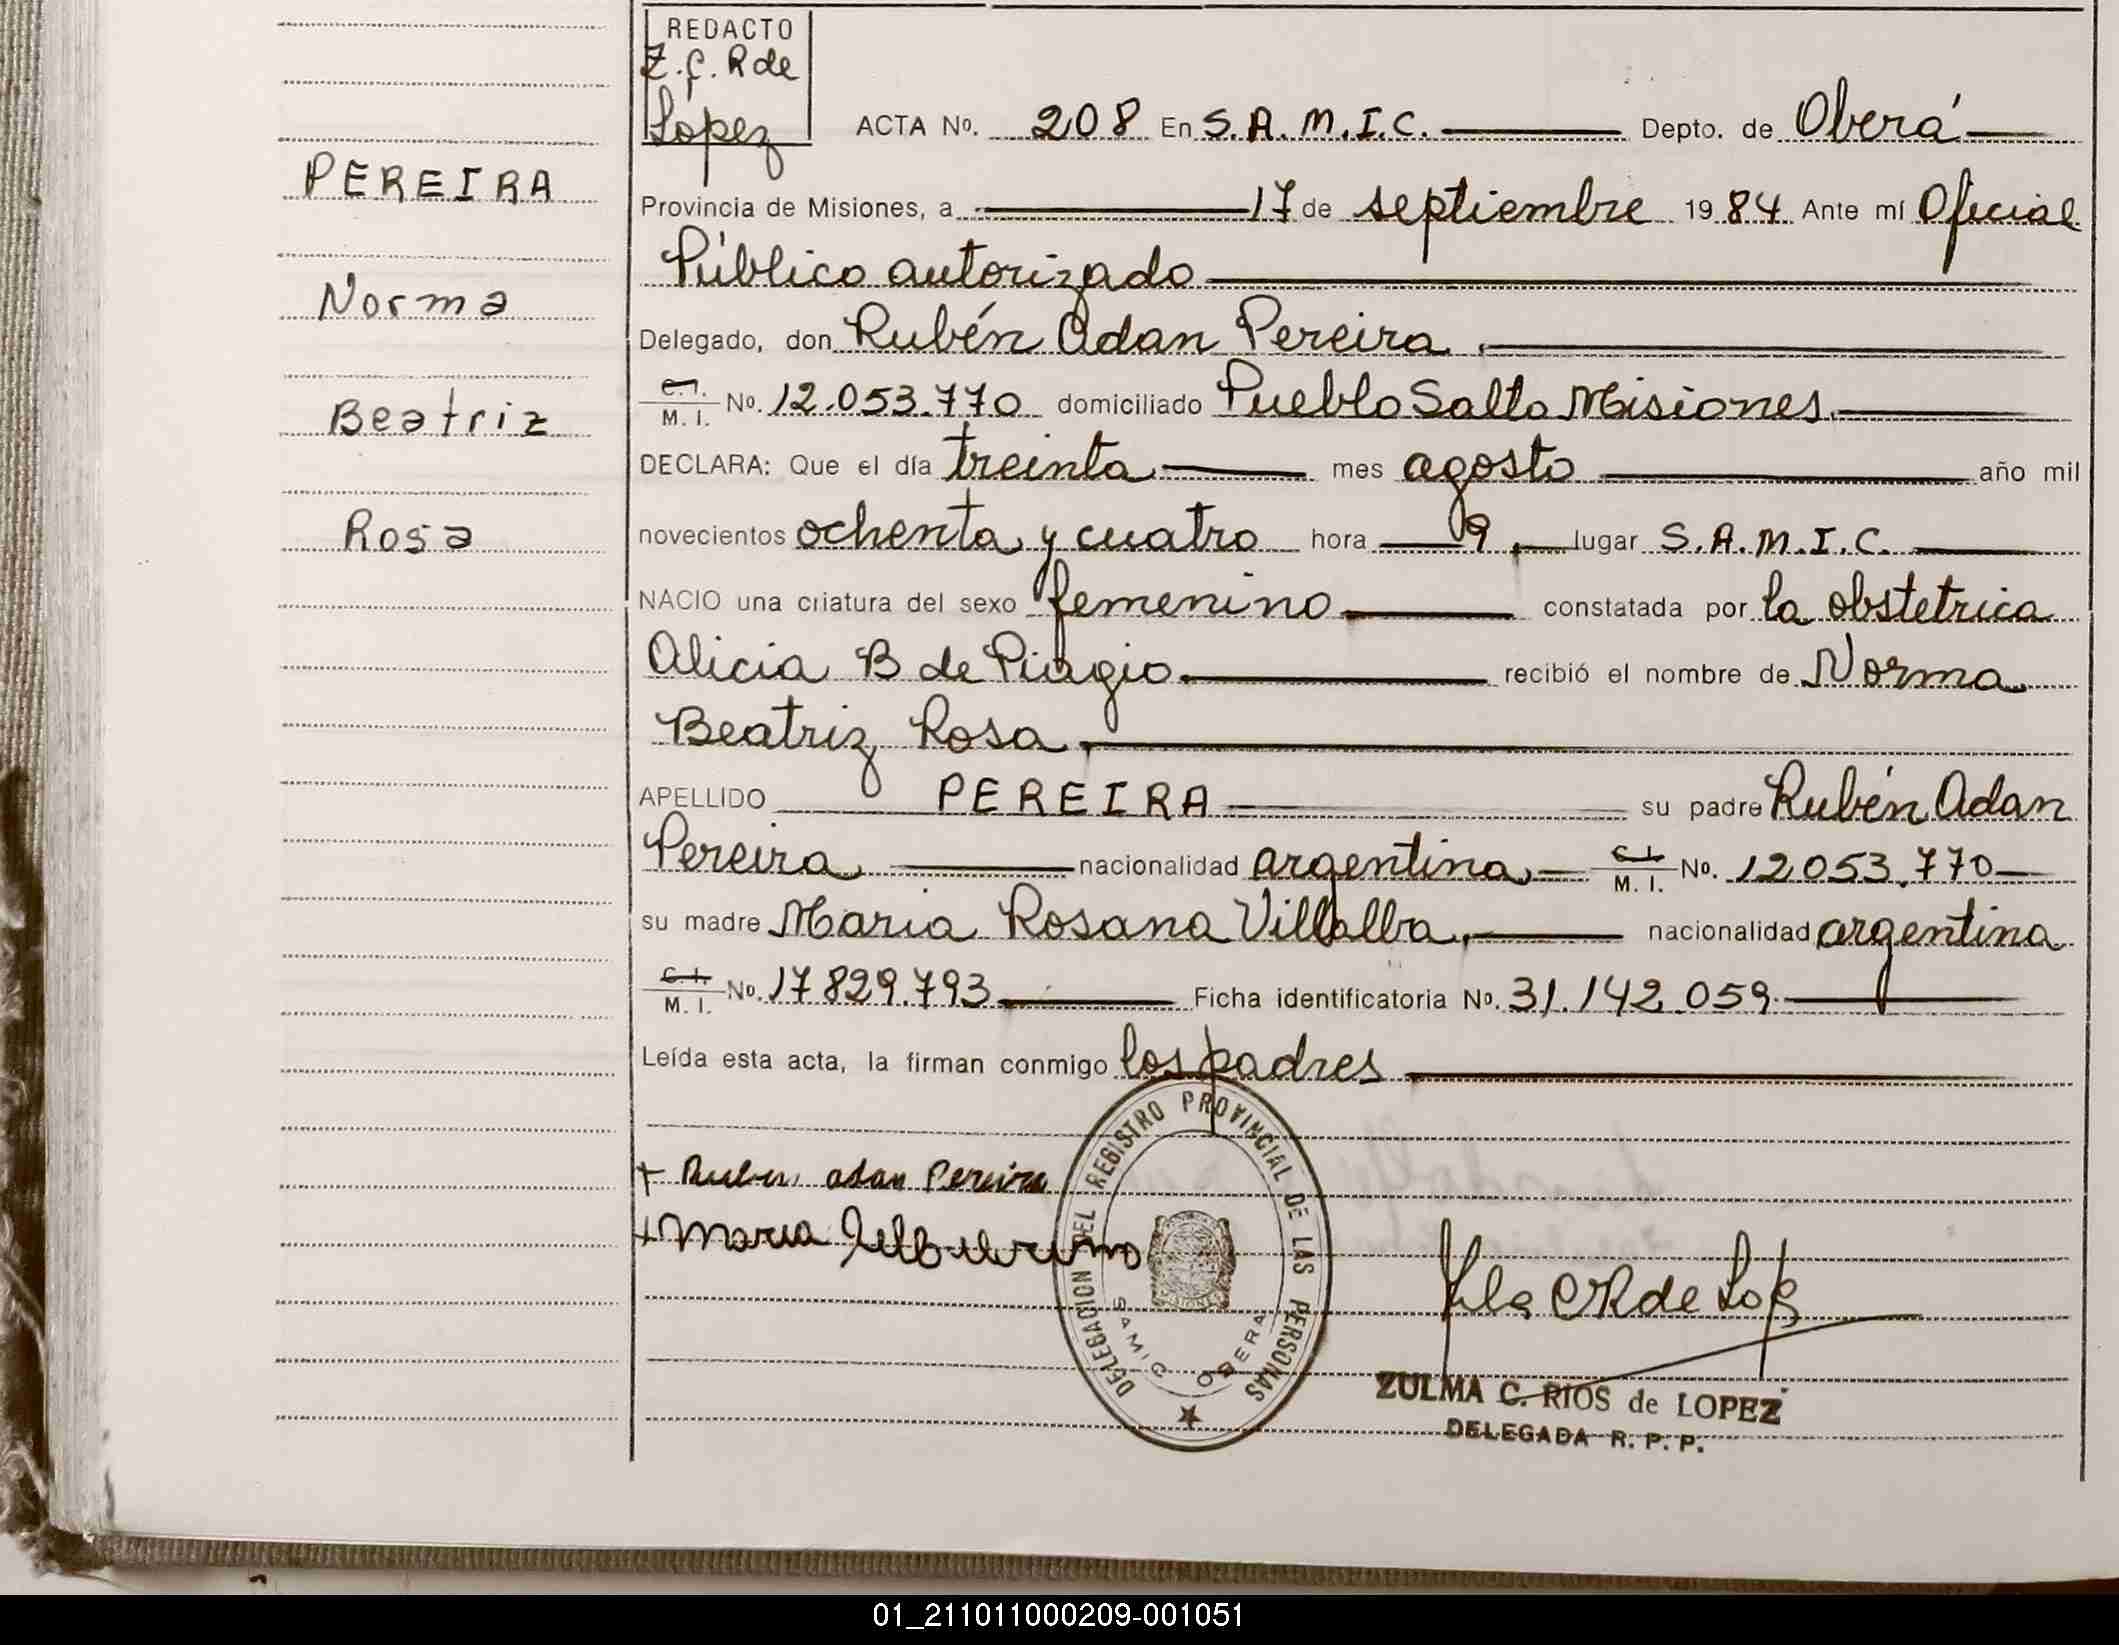 REDACTO
Z.C. R de
López
ACTA No. 208 En S.A.M.I.C. Depto. de Oberá
Provincia de Misiones, a 17 de septiembre 1984 Ante mí Oficial
Público autorizado
Delegado, don Rubén Adan Pereira.
C.I. M.I. No. 12.053.770 domiciliado Pueblo Salto Misiones.
DECLARA: Que el día treinta mes agosto año mil
novecientos ochenta y cuatro hora 9 lugar S.A.M.I.C.
NACIO una criatura del sexo femenino constatada por la obstetrica
Alicia B de Piragio recibió el nombre de Norma
Beatriz Rosa.
APELLIDO PEREIRA su padre Rubén Adan
Pereira nacionalidad argentina C.I. M.I. No. 12053.770
su madre Maria Rosana Villalba. nacionalidad argentina
C.I. M.I. No. 17829.793 Ficha identificatoria No. 31.142.059
Leída esta acta, la firman conmigo los padres
PEREIRA
Norma
Beatriz
Rosa
+ Ruben adan Pereira
+ Maria
DELEGACION DEL REGISTRO PROVINCIAL DE LAS PERSONAS
SAMIC OBERA
ZULMA C. RIOS de LOPEZ
DELEGADA R. P. P.
01_211011000209-001051